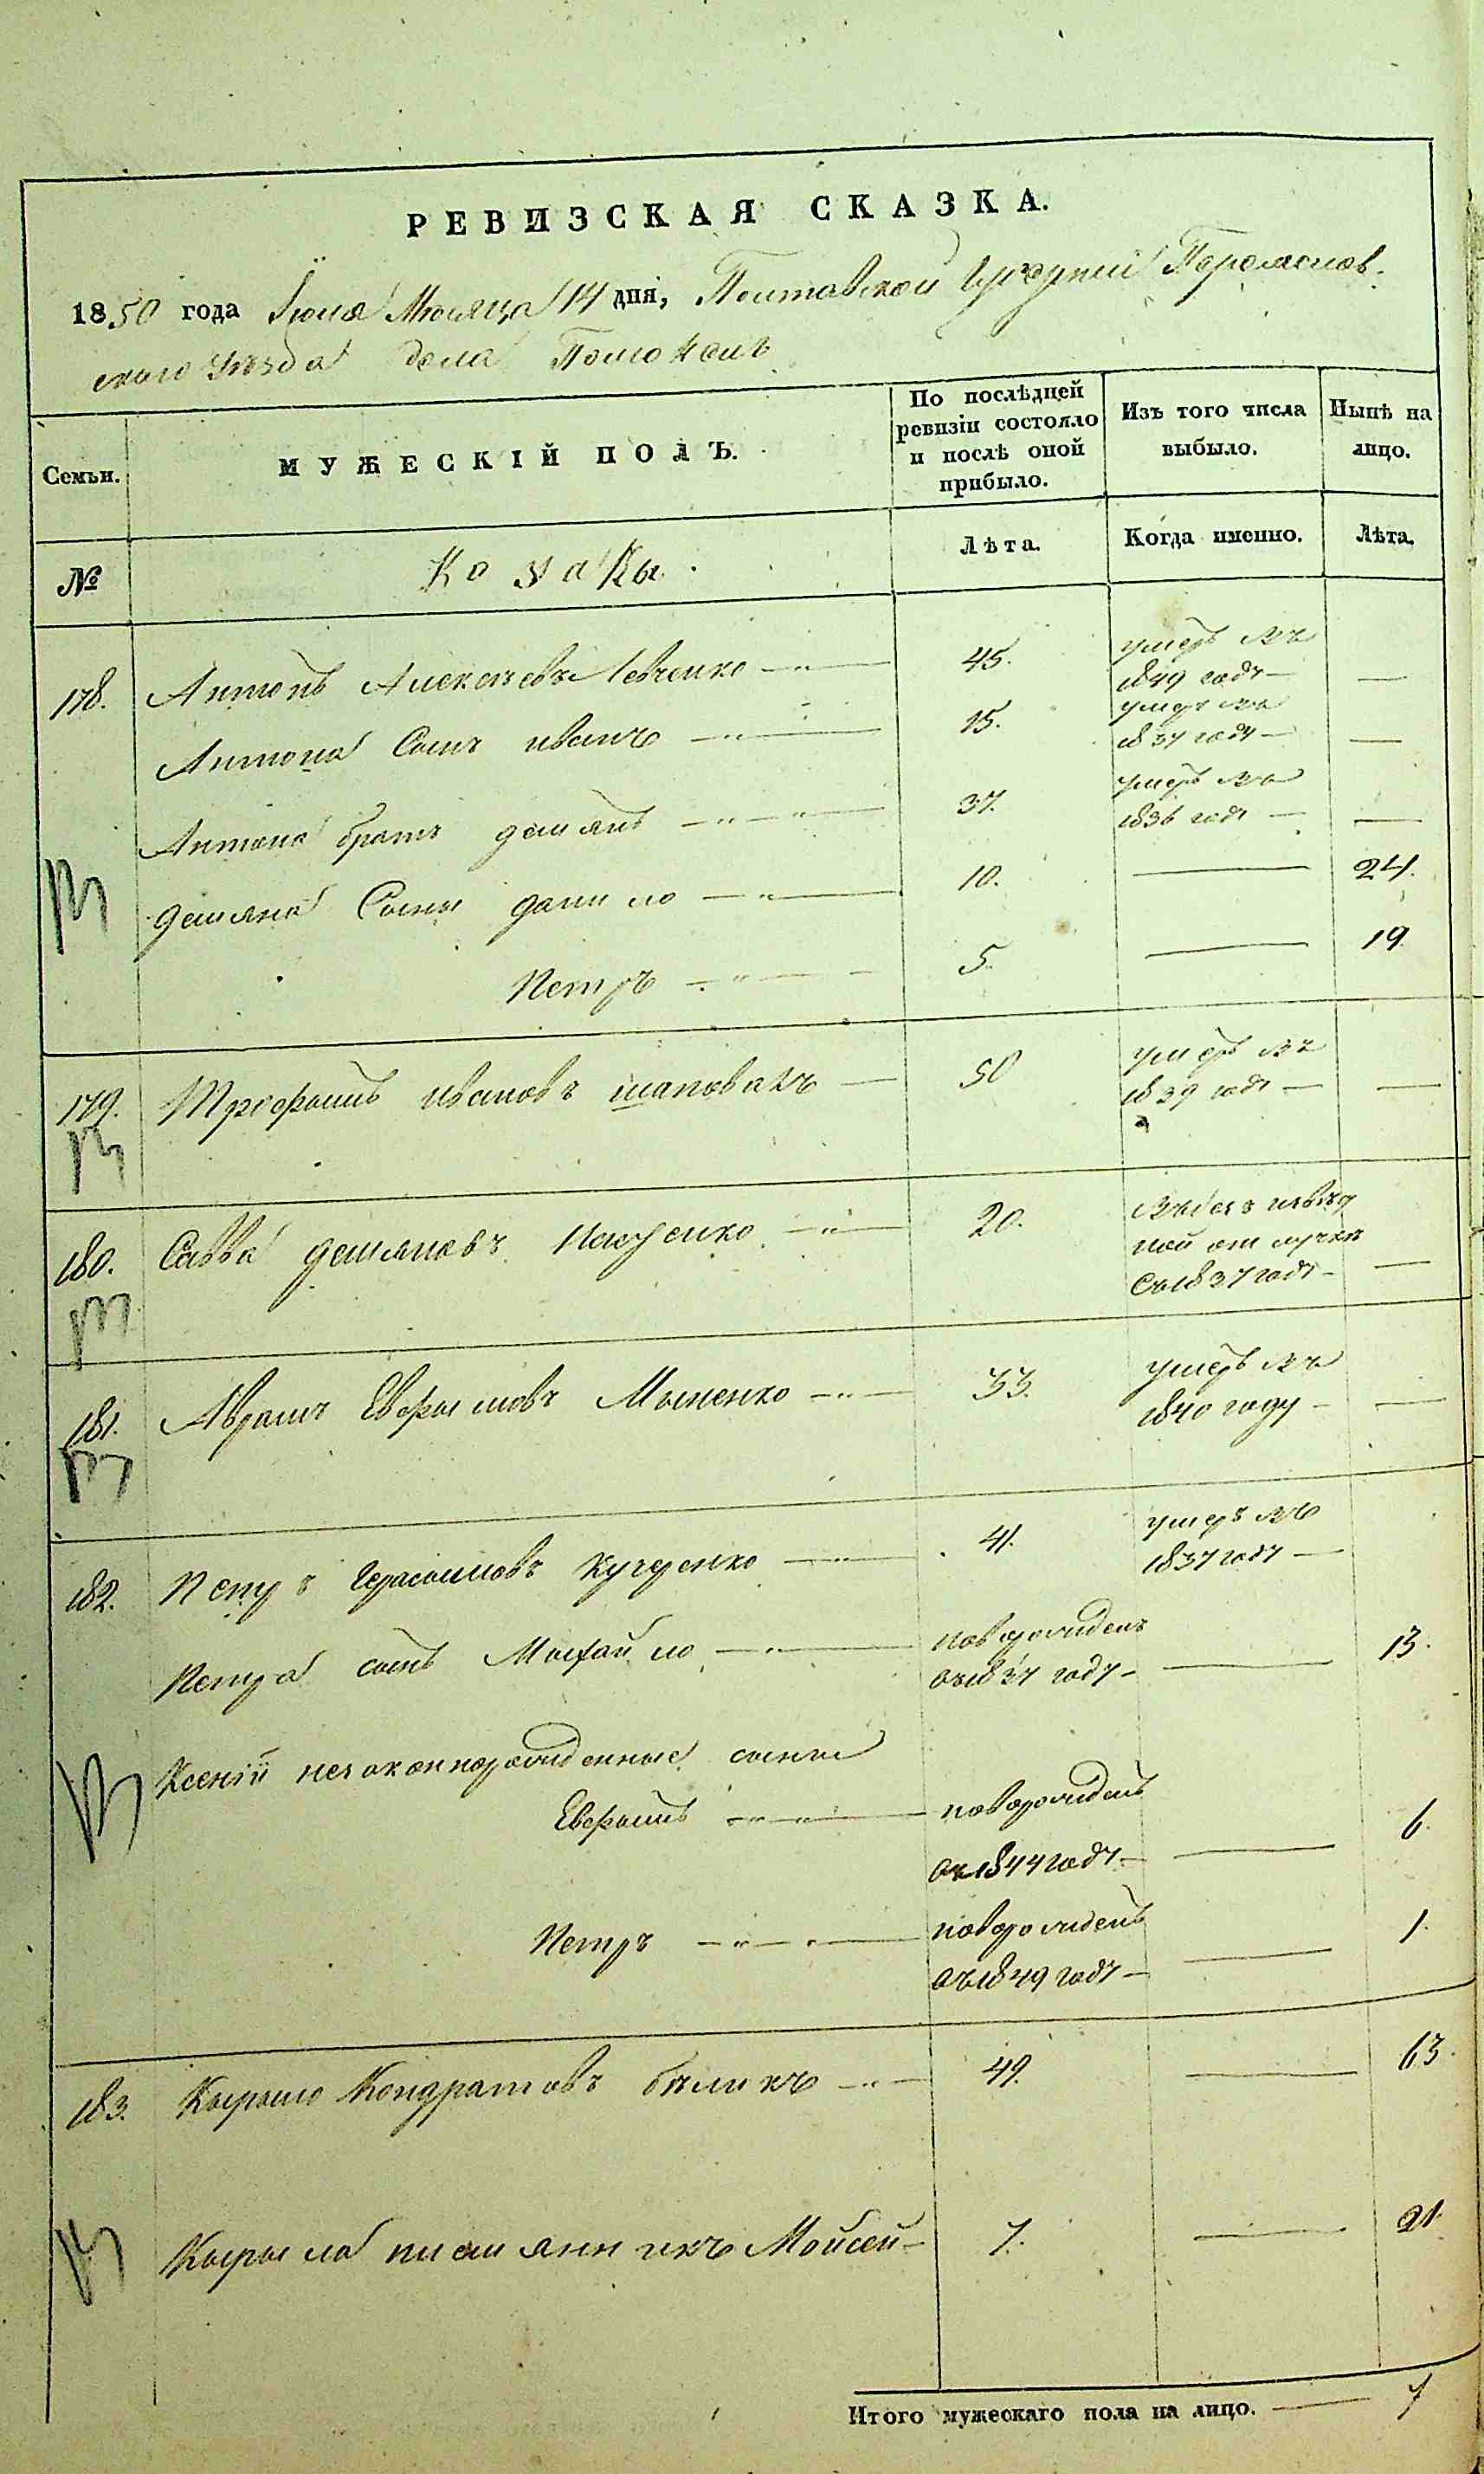 РЕВИЗСКАЯ СКАЗКА.
1850 года Іюня Месяца 14 дня, Полтавской Губерніи Переяслов-
ского уезда села Помоклъ
Семьи.
МУЖЕСКІЙ ПОЛЪ.
По послѣдней ревизіи состояло и послѣ оной прибыло.
Изъ того числа выбыло.
Нынѣ на лицо.
№
Козаки.
Лѣта.
Когда именно.
Лѣта.
178. Антонъ Алексѣевъ Левченко 45. умеръ въ 1849 году —
Антона Сынъ иванъ 15. умеръ въ 1837 году —
Антона братъ демянъ 37. умеръ въ 1836 году —
демяна Сыны данило 10. — 24.
Петръ 5. — 19.
179. Трофимъ ивановъ шаповалъ — 50 умеръ въ 1839 году —
180. Савва демяновъ 20. отлучкѣ съ 1837 году —
181. Аврамъ Евфимовъ Мыненко 33. умеръ въ 1840 году —
182. Петръ Герасимовъ Кучеренко 41. умеръ въ 1837 году —
Петра сынъ Михайло новорожденъ въ 1837 году — 13.
Ксеніи незаконнорожденные сыны
Евфимъ новорожденъ въ 1844 году — 6.
Петръ новорожденъ въ 1849 году — 1.
183. Кырыло Кондратовъ бѣликъ 49. — 63.
Кырыла племянникъ Мойсей — 7. — 21.
Итого мужескаго пола на лицо. — 7